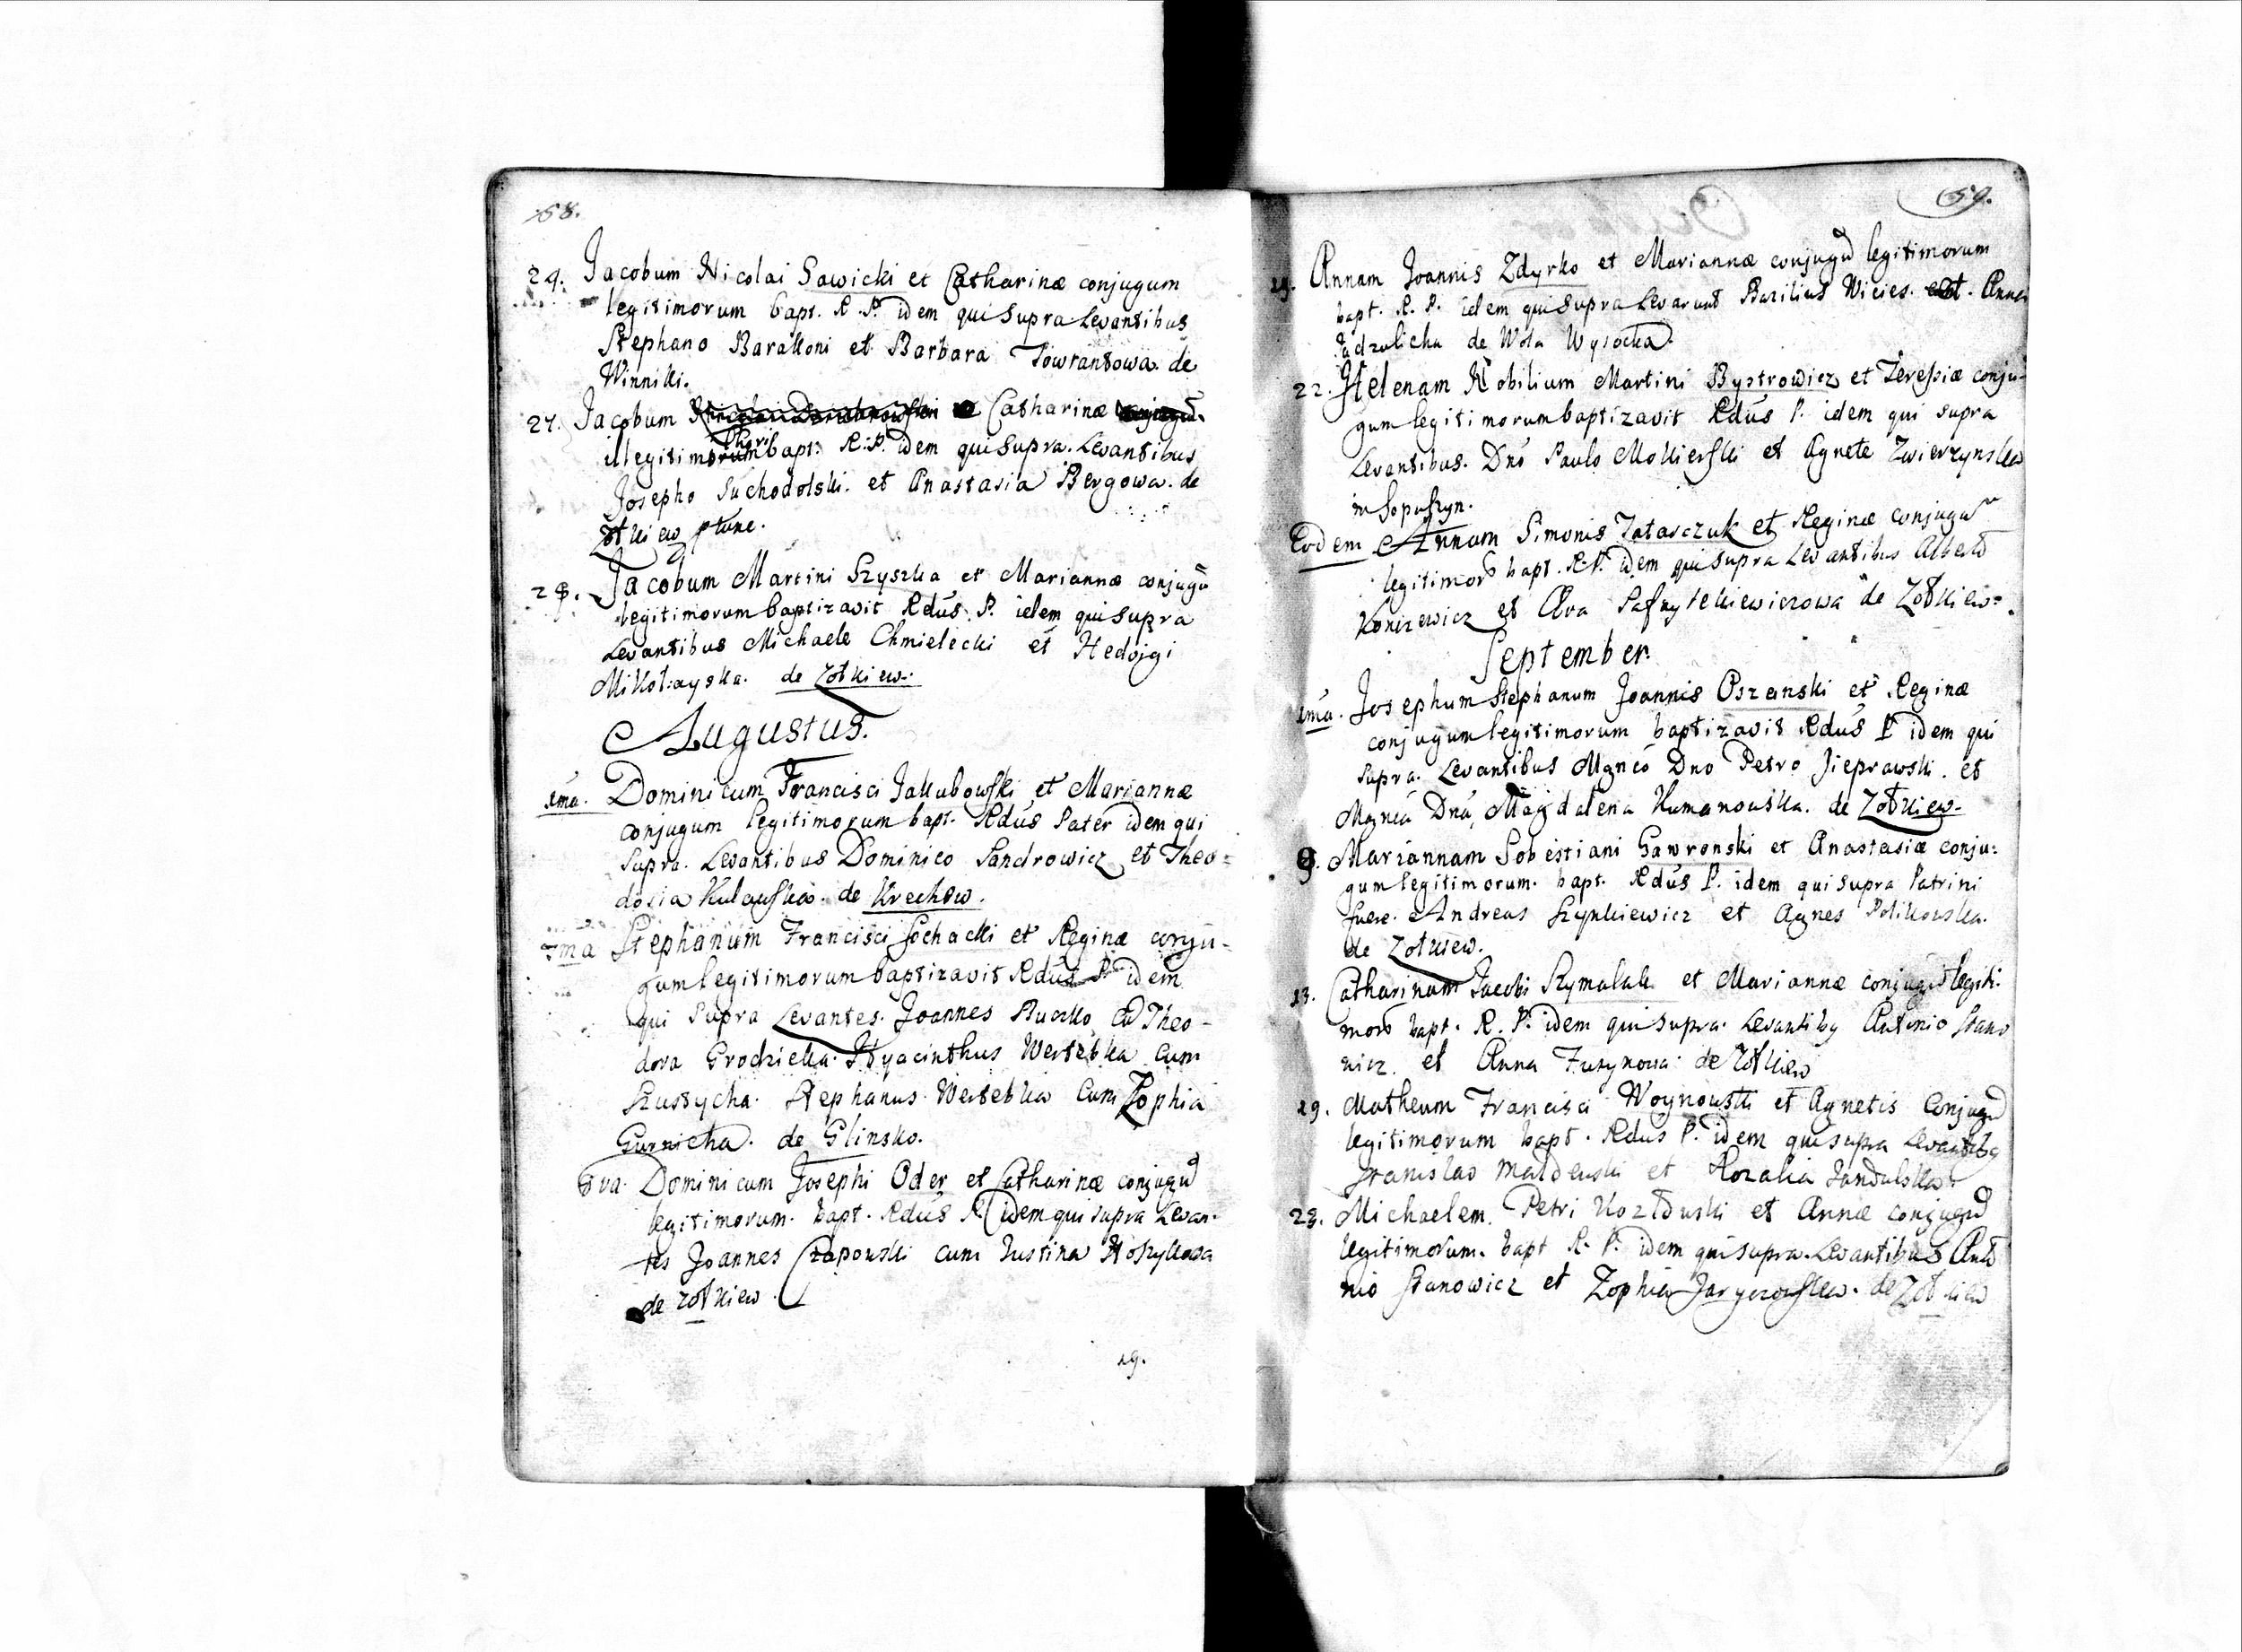 58.
24. Jacobum Nicolai Sawicki et Catharinæ conjugum
legitimorum bapt. R. P. idem qui supra Levantibus
Stephano Baralloni et Barbara Towrantowa de
Winniki.
27. Jacobum Catharinæ
illegitimi thori bapt. R. P. idem qui supra. Levantibus
Josepho Suchodolski. et Anastasia Bergowa. de
Zołkiew
28. Jacobum Martini Szyszka et Mariannæ conjugū
legitimorum baptizavit Rdūs. P. idem qui supra
Levantibus Michaele Chmielecki et Hedvigi
Mikołayska. de Zołkiew.
Augustus.
1mā. Dominicum Francisci Jakubowski et Mariannæ
conjugum legitimorum bapt. Rdūs Pater idem qui
supra. Levantibus Dominico Sandrowicz et Theo=
dosia de Krechow.
Stephanum Francisci Sochacki et Reginæ conju-
gum legitimorum baptizavit Rdūs P. idem
qui supra Levantes. Joannes et Theo-
dora Grodzicka. Hyacinthus Wertebka cum
Szustycha. Stephanus Wertebka cum Zophia
de Glinsko.
8va. Dominicum Josephi Oder et Catharinæ conjugū
legitimorum. bapt. Rdūs P. idem qui supra Levan-
tes Joannes Czapowski cum Justina
de Zołkiew.
19.
59.
19. Annam Joannis Zdyrko et Mariannæ conjugū legitimorum
bapt. R. P. idem qui supra Levarunt Bazilius Anna
de Wola Wysocka.
22. Helenam Nobilium Martini Bystrowicz et Teressiæ conju-
gum legitimorum baptizavit Rdūs P. idem qui supra
Levantibus. Dnō Paulo Mokierski et Agnete Zwierzynska
in Sopuszyn.
Eodem Annam Simonis Tatarczuk et Reginæ conjugū
legitimorō bapt. R. P. idem qui supra Levantibus Alberto
Konizewicz et de Zołkiew.
September.
1mā. Josephum Stephanum Joannis Oszanski et Reginæ
conjugum legitimorum baptizavit Rdūs P. idem qui
supra. Levantibus Mgncō Dno Petro Jieprawski. et
Mgncā Dnā, Magdalena Humanouska. de Zołkiew.
Mariannam Sobestiani Gawronski et Anastasiæ conju:
gum legitimorum. bapt. Rdūs P. idem qui supra Patrini
fuere. Andreas Szynkiewicz et Agnes Polikouska.
de Zołkiew.
13. Catharinam Jacobi Szymalak et Mariannæ conjugū legiti-
morō bapt. R. P. idem qui supra. Levantibg Antonio Stano
wicz. et Anna de Zołkiew
19. Matheum Francisci Woynouski et Agnetis Conjugū
legitimorum bapt. Rdus P. idem qui supra Levantibg
Stanislao et Rozalia Jandulska.
23. Michaelem. Petri Kozłduski et Annæ conjugū
legitimorum. bapt R. P. idem qui supra. Levantibus Anto
nio Stanowicz et Zophia de Zołkiew